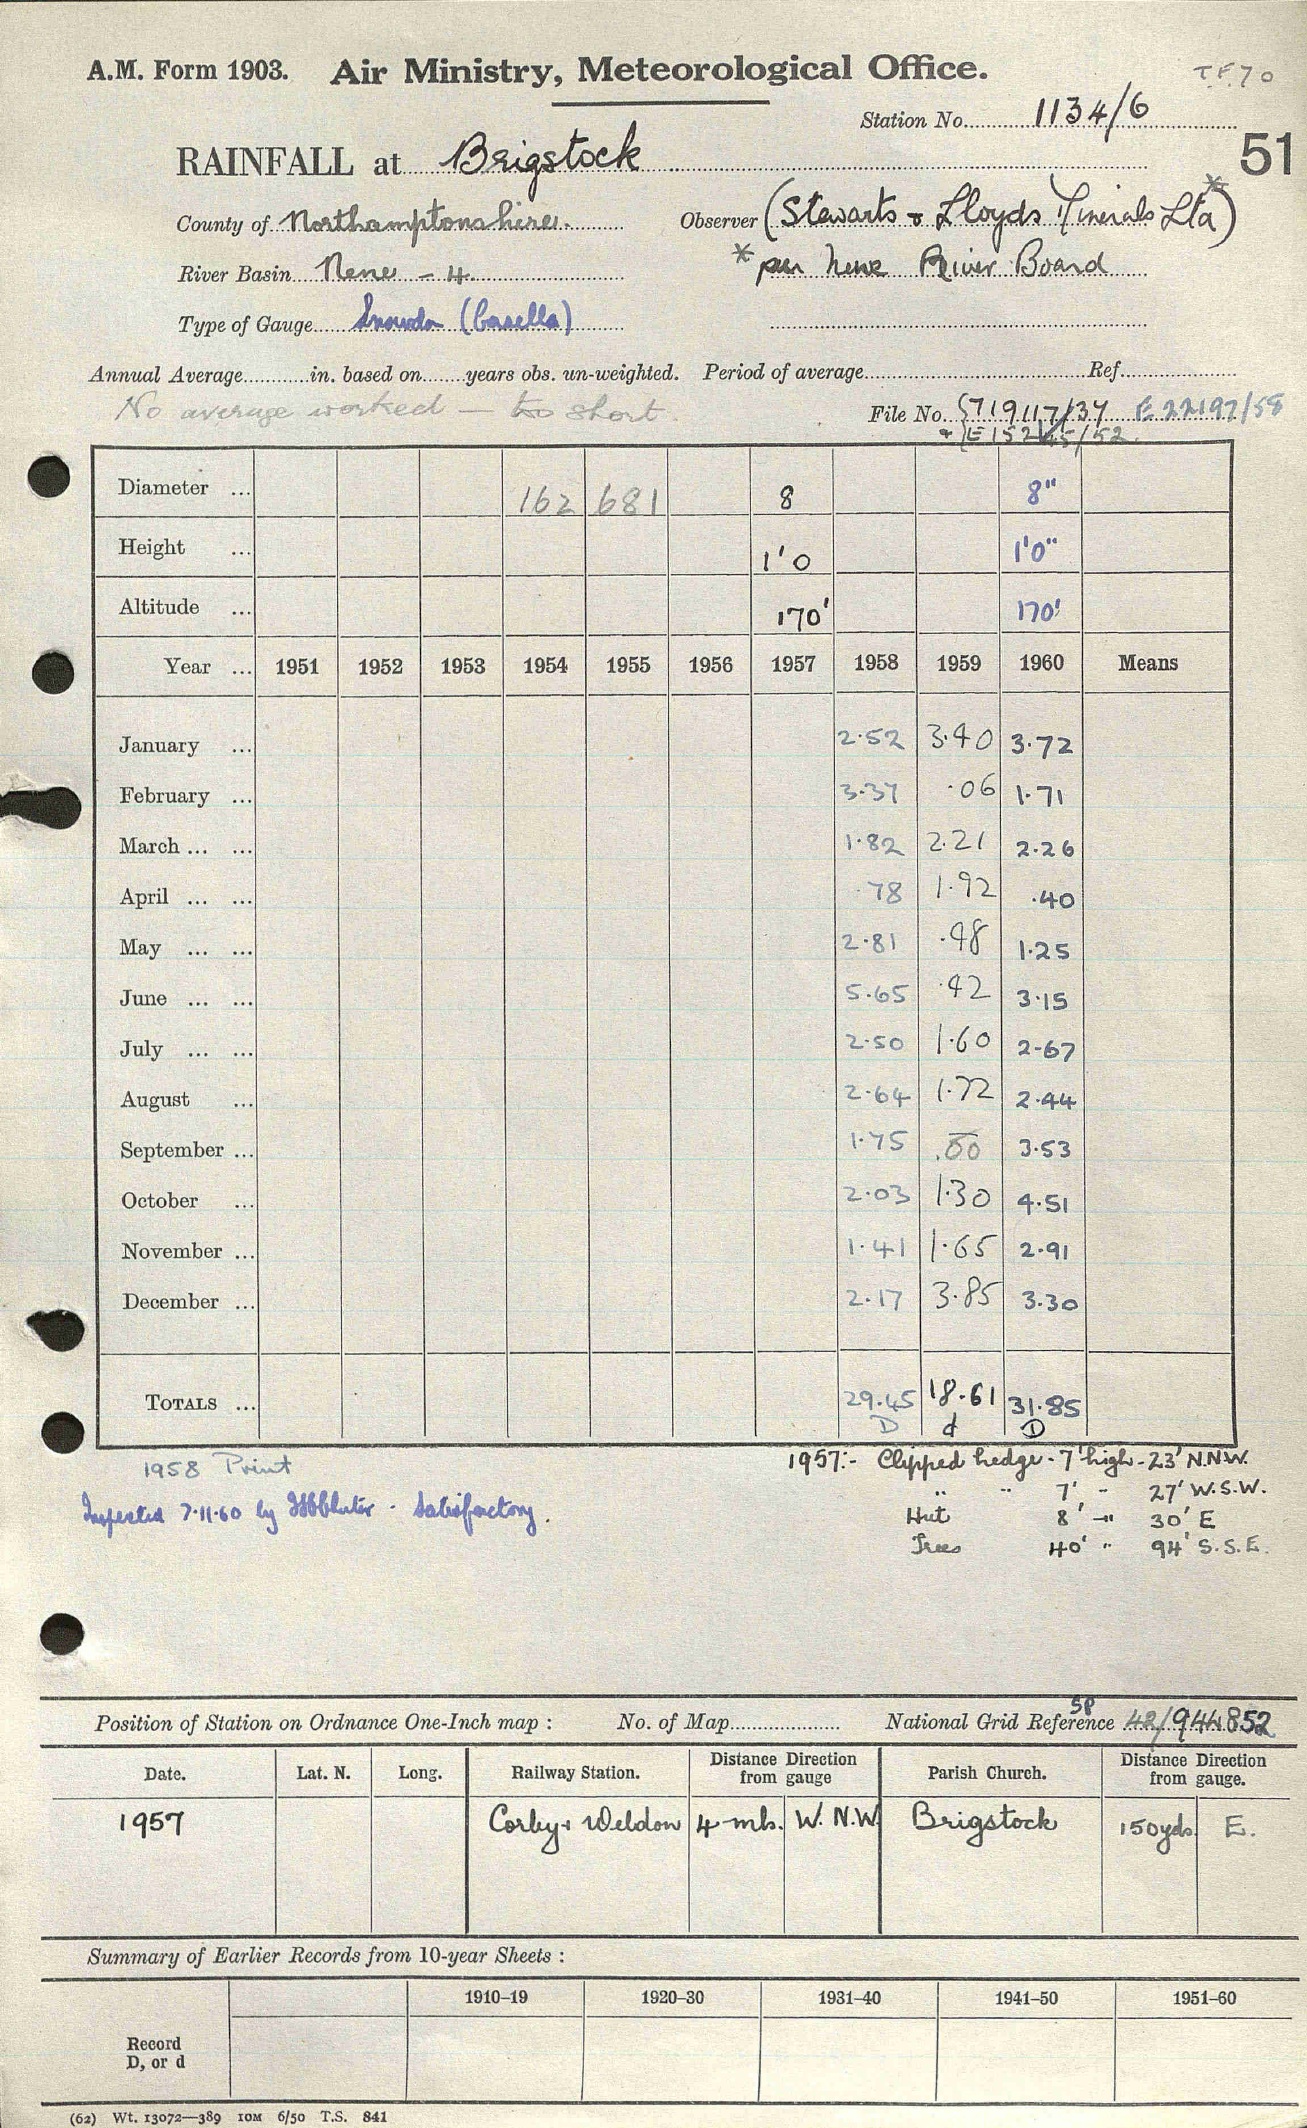 A.M. Form 1903. Air Ministry, Meteorological Office. TF.70
Station No. 1134/6
RAINFALL at Brigstock 51
County of Northamptonshire. Observer (Stewarts & Lloyds Minerals Ltd)*
River Basin Nene - 4 *per Nene River Board
Type of Gauge Snowdon (Casella)
Annual Average in. based on years obs. un-weighted. Period of average Ref.
No average worked — too short.
File No. {719117/37 E 22197/58
+ {E 15245/52
Diameter ... 162 681 8 8"
Height ... 1'0 1'0"
Altitude ... 170' 170'
Year ... 1951 1952 1953 1954 1955 1956 1957 1958 1959 1960 Means
January ... 2.52 3.40 3.72
February ... 3.37 .06 1.71
March ... ... 1.82 2.21 2.26
April ... ... .78 1.92 .40
May ... ... 2.81 .48 1.25
June ... ... 5.65 .42 3.15
July ... ... 2.50 1.60 2.67
August ... 2.64 1.72 2.44
September ... 1.75 .00 3.53
October ... 2.03 1.30 4.51
November ... 1.41 1.65 2.91
December ... 2.17 3.85 3.30
TOTALS ... 29.45 18.61 31.85
D d D
1958 Print 1957:- Clipped hedge - 7' high - 23' N.N.W.
" " 7' " 27' W.S.W.
Inspected 7.11.60 by - Satisfactory. Hut 8' " 30' E
Trees 40' " 94' S.S.E.
Position of Station on Ordnance One-Inch map : No. of Map National Grid Reference SP 42/944852
Date. Lat. N. Long. Railway Station. Distance Direction from gauge Parish Church. Distance Direction from gauge.
1957 Corby & Weldon 4 mls. W.N.W. Brigstock 150yds E.
Summary of Earlier Records from 10-year Sheets :
1910–19 1920–30 1931–40 1941–50 1951–60
Record
D, or d
(62) Wt. 13072—389 10M 6/50 T.S. 841